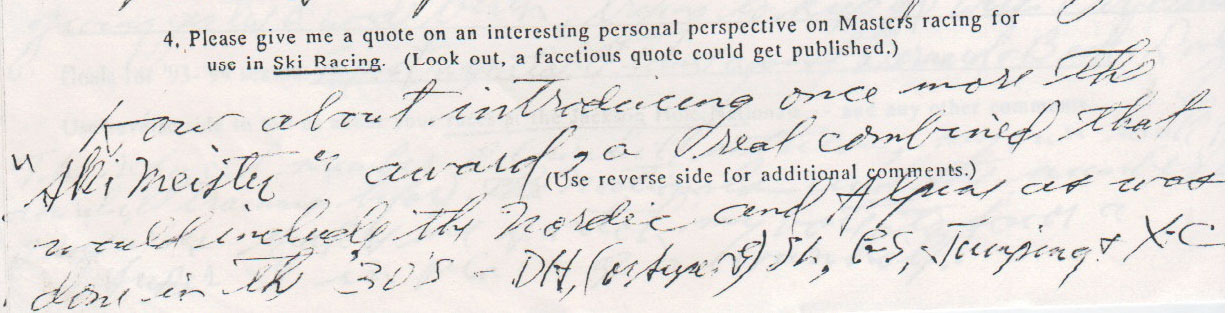 4. Please give me a quote on an interesting personal perspective on Masters racing for
use in Ski Racing. (Look out, a facetious quote could get published.)
How about introducing once more the
"Ski Meister" award, a real combined that
(Use reverse side for additional comments.)
would include the Nordic and Alpine as was
done in the 30's - DH, (or super G) SL, GS, Jumping & X-C